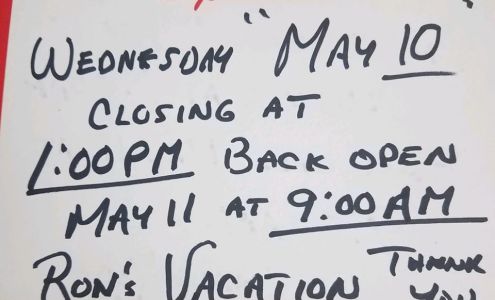 WEDNESDAY " MAY 10
CLOSING AT
1:00 PM BACK OPEN
MAY 11 AT 9:00 AM
RON'S VACATION THANK YOU